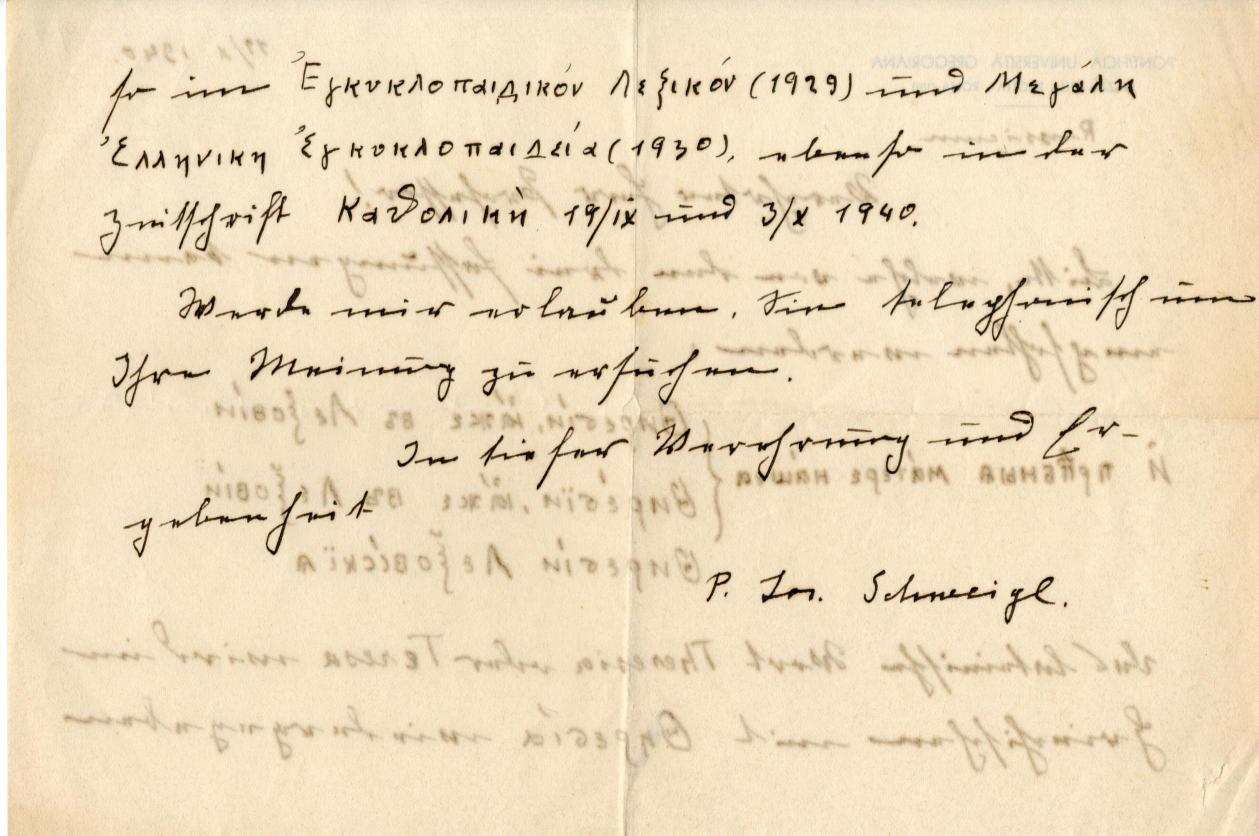 so im Ἐγκυκλοπαιδικόν Λεξικόν (1929) und Μεγάλη
Ἑλληνικη Ἐγκυκλοπαιδεία (1930), ebenso in der
Zeitschrift Καθολική 19/IX und 3/X 1940.
Werde mir erlauben, Sie telephonisch um
Ihre Meinung zu ersuchen.
In tiefer Verehrung und Er-
gebenheit
P. Jos. Schweigl.